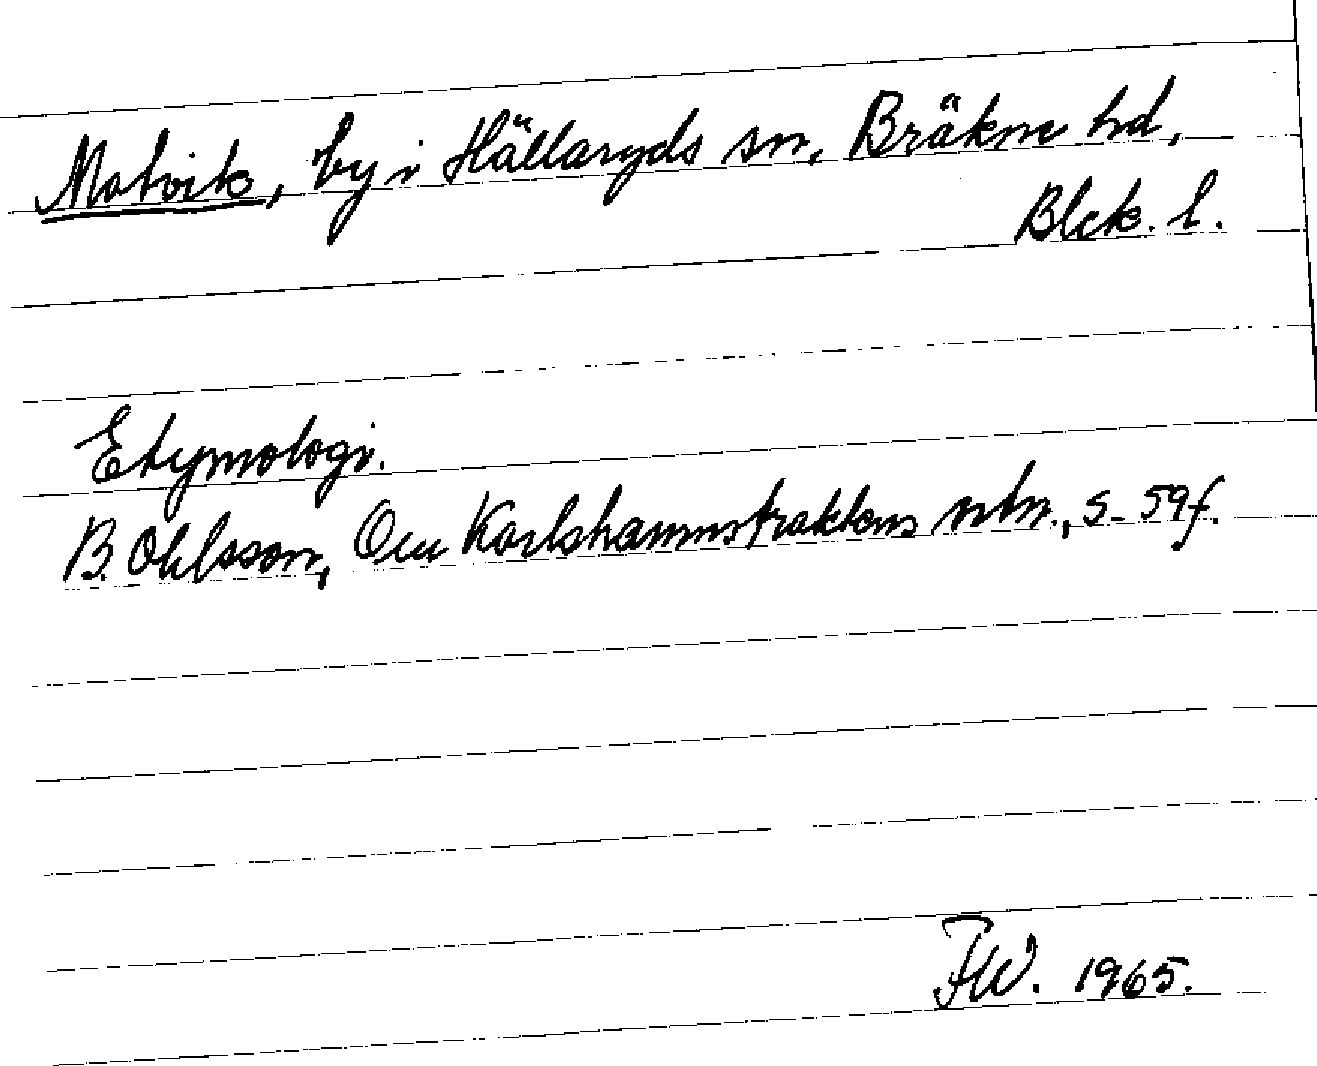 Matvik, by i Hällaryds sn, Bräkne hd,
Blek. l.
Etymologi.
B. Ohlsson, Om Karlshamnstraktens mln., s. 59f.
FW. 1965.